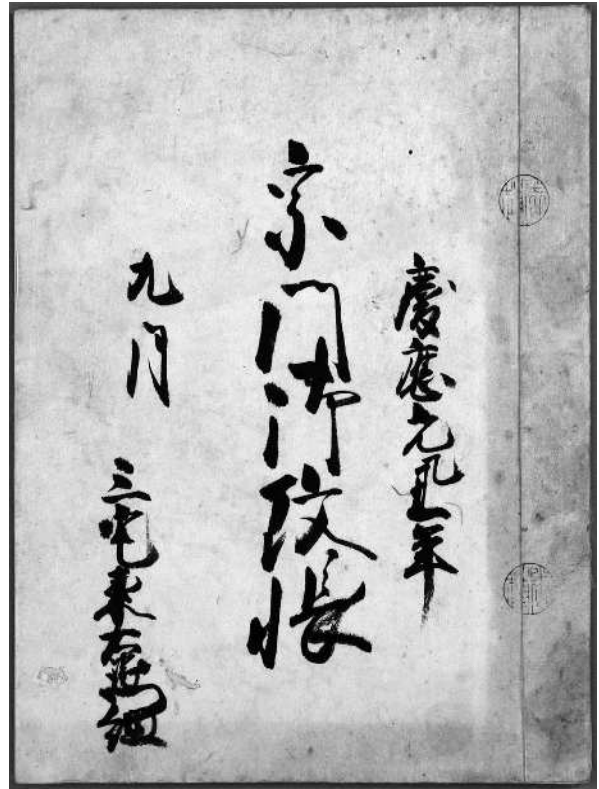 慶應元丑年
宗門御改帳
九月
三宅 右 組